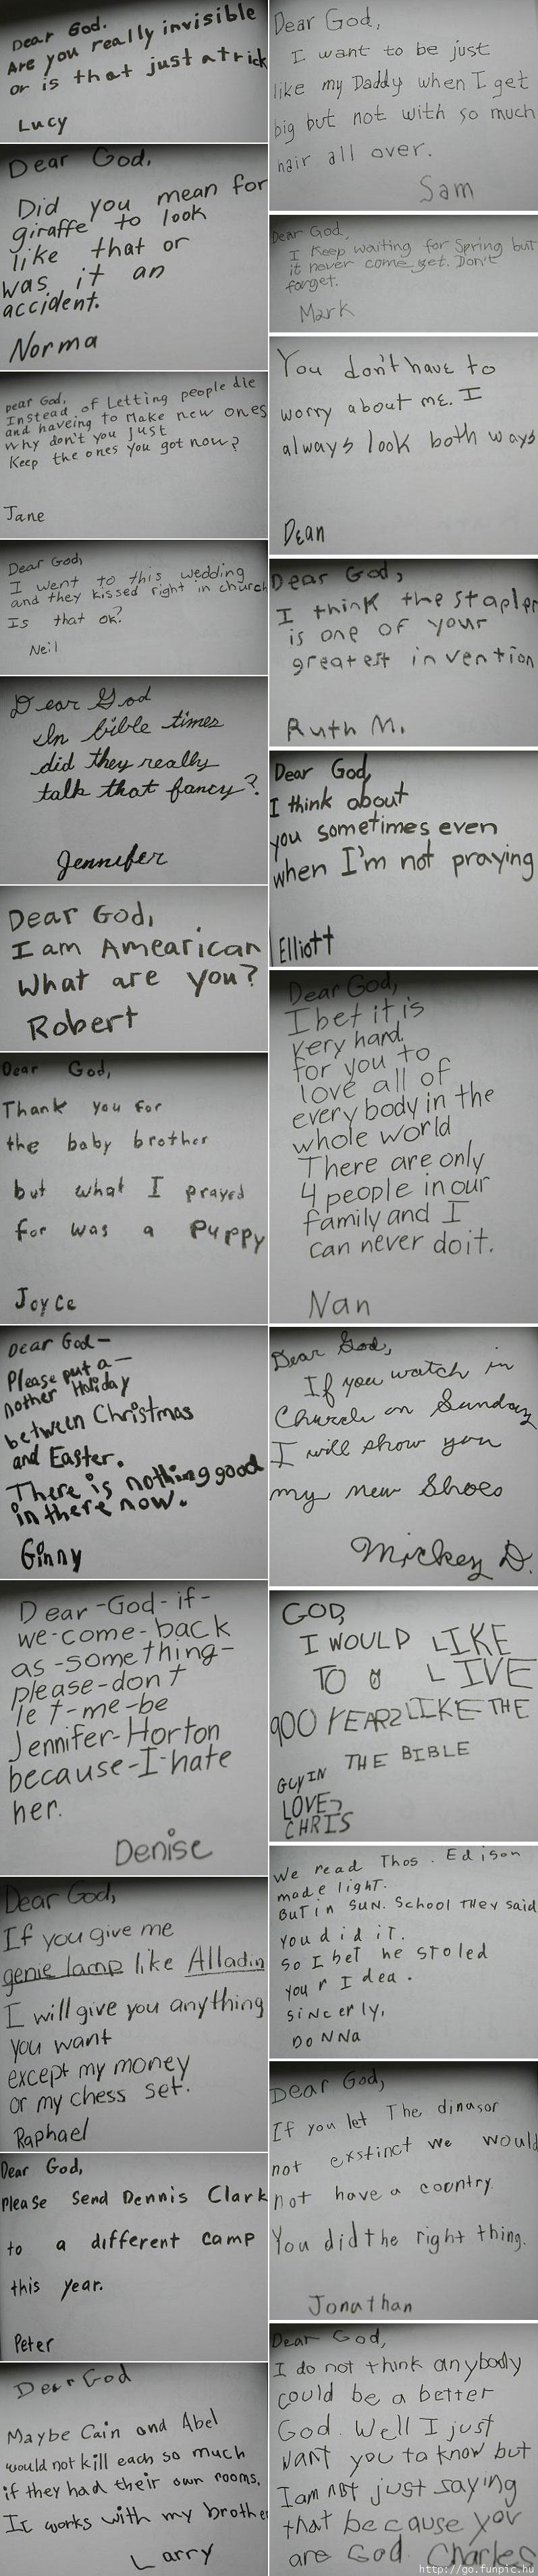 Dear God.
Are you really invisible
or is that just a trick
Lucy
Dear God,
Did you mean for
giraffe to look
like that or
was it an
accident.
Norma
Dear God,
Instead of Letting people die
and haveing to Make new ones
why don't you Just
Keep the ones you got now?
Jane
Dear God,
I went to this wedding
and they kissed right in church
Is that ok?
Neil
Dear God
In bible times
did they really
talk that fancy?
Jennifer
Dear God,
I am Amearican
What are you?
Robert
Dear God,
Thank you for
the baby brother
but what I prayed
for was a puppy
Joyce
Dear God-
Please put a-
nother Holiday
between Christmas
and Easter.
There is nothing good
in there now.
Ginny
Dear-God-if-
we-come-back
as-something-
please-don't
let-me-be
Jennifer-Horton
because-I-hate
her.
Denise
Dear God,
If you give me
genie lamp like Alladin
I will give you anything
you want
except my money
or my chess set.
Raphael
Dear God,
Please Send Dennis Clark
to a different camp
this year.
Peter
Dear God
Maybe Cain and Abel
would not kill each so much
if they had their own rooms.
It works with my brothe
Larry
Dear God,
I want to be just
like my Daddy when I get
big but not with so much
hair all over.
Sam
Dear God,
I Keep waiting for Spring but
it never come yet. Don't
forget.
Mark
You don't have to
worry about me. I
always look both ways
Dean
Dear God,
I think the stapler
is one of your
greatest invention
Ruth M.
Dear God,
I think about
you sometimes even
when I'm not praying
Elliott
Dear God,
I bet it is
very hard
for you to
love all of
every body in the
whole world
There are only
4 people in our
family and I
can never do it.
Nan
Dear God,
If you watch in
Church on Sunday
I will show you
my new Shoes
Mickey D.
GOD,
I WOULD LIKE
TO LIVE
900 YEARS LIKE THE
GUY IN THE BIBLE
LOVE,
CHRIS
We read Thos. Edison
made light.
But in Sun. School they said
you did it.
So I bet he stoled
your Idea.
Sincerly,
DoNNa
Dear God,
If you let The dinasor
not exstinct we would
not have a country.
You did the right thing.
Jonathan
Dear God,
I do not think anybody
could be a better
God. Well I just
want you to know but
I am not just saying
that because you
are God. Charles
http://go.funpic.hu